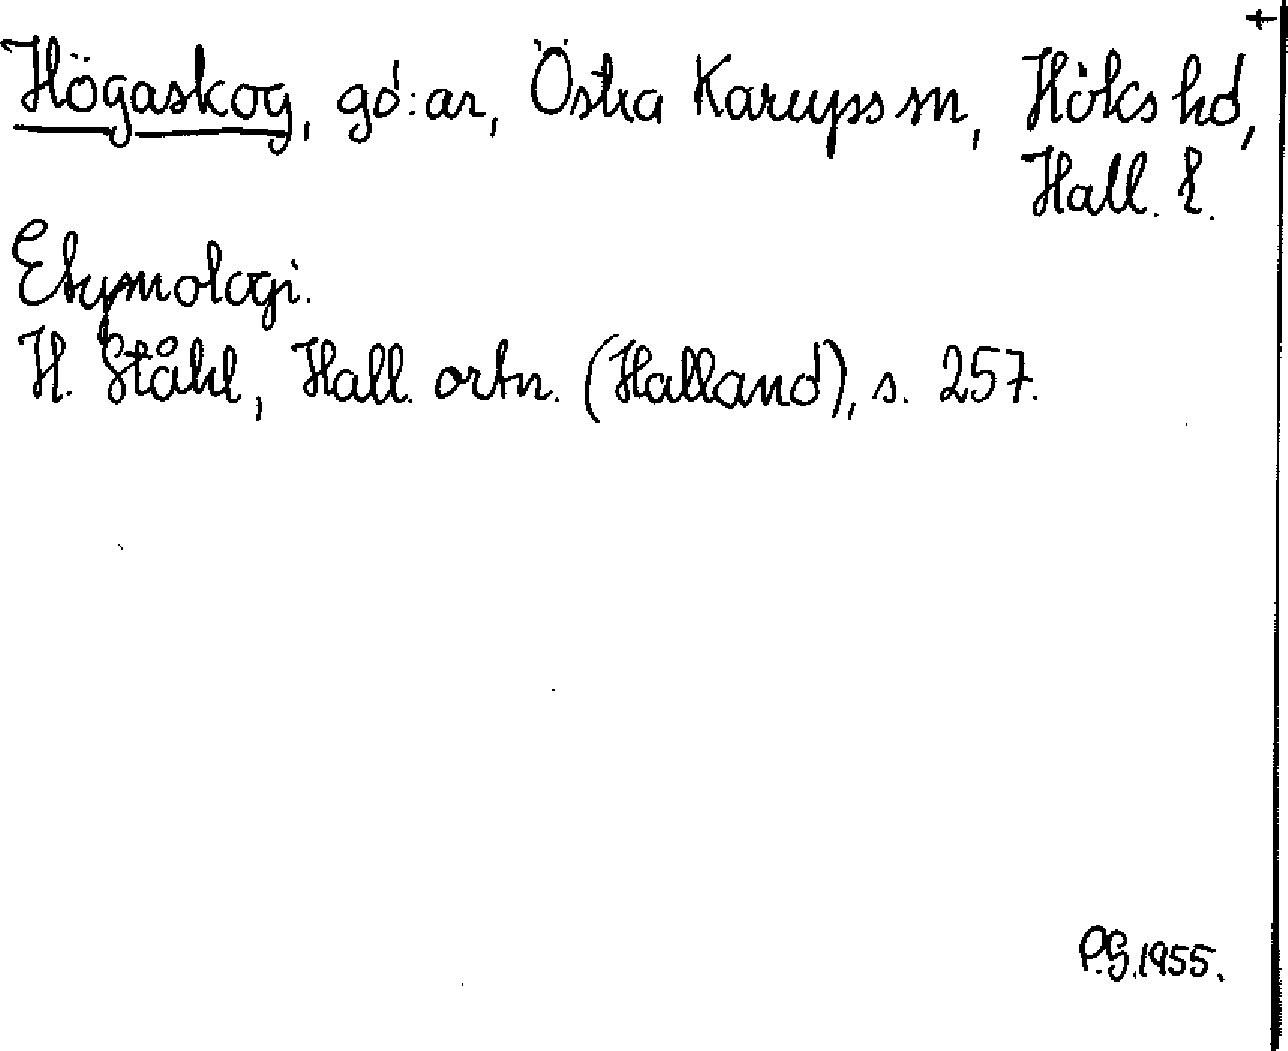 +
Högaskog, gd:ar, Östra Karups sn, Höks hd,
Hall. l.
Etymologi.
H. Ståhl, Hall. ortn. (Halland), s. 257.
P.G. 1955.